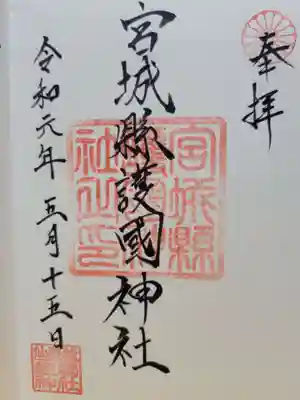 奉拝
宮城縣護國神社
令和元年 五月十五日
宮城縣
護國神
社之印